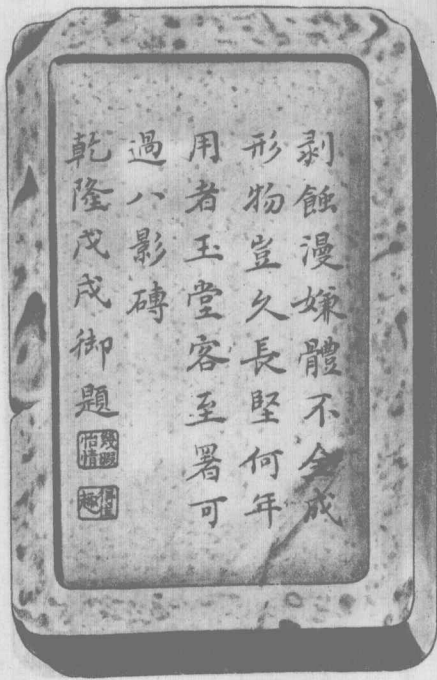 剥蝕漫嫌體不全成
形物豈久長堅何年
用者玉堂客至署可
過八影磚
乾隆戊戌御題
幾暇怡情
得佳趣